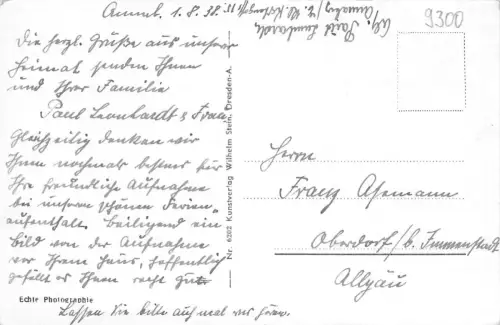 Annab. 1.8.38.
Die herzl. Grüße aus unserer
Heimat senden Ihnen
und Ihrer Familie
Paul Leonhardt & Frau,
Gleichzeitig danken wir
Ihnen nochmals bestens für
Ihre freundliche Aufnahme
bei unserem schönen Ferien-
aufenthalt. Beiliegend ein
Bild von der Aufnahme
vor Ihrem Haus, hoffentlich
gefällt es Ihnen recht gut
Lassen Sie bitte auch mal was hören.
Echte Photographie
Nr. 6202 Kunstverlag Wilhelm Stein, Dresden-A.
Abs. Paul Leonhardt
Annaberg
9300
Herrn
Franz Assmann
Oberdorf b. Immenstadt
Allgäu